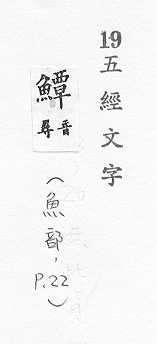 19五經文字
鱏
尋音
（魚部，P.22）